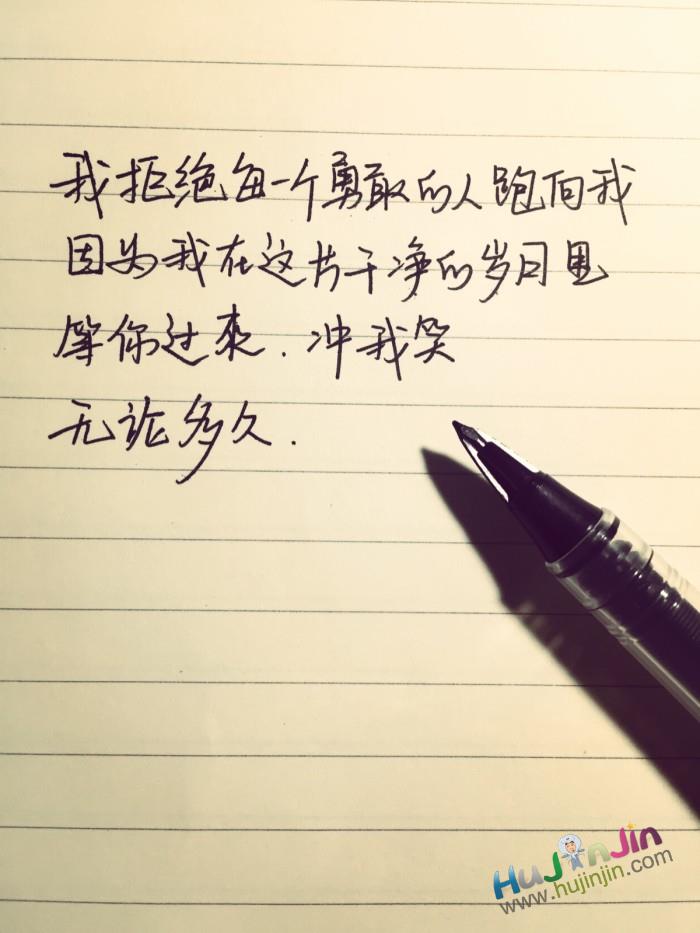 我拒绝每一个勇敢的人跑向我
因为我在这片干净的岁月里
等你过来.冲我笑
无论多久.
HuJinJin
www.hujinjin.com